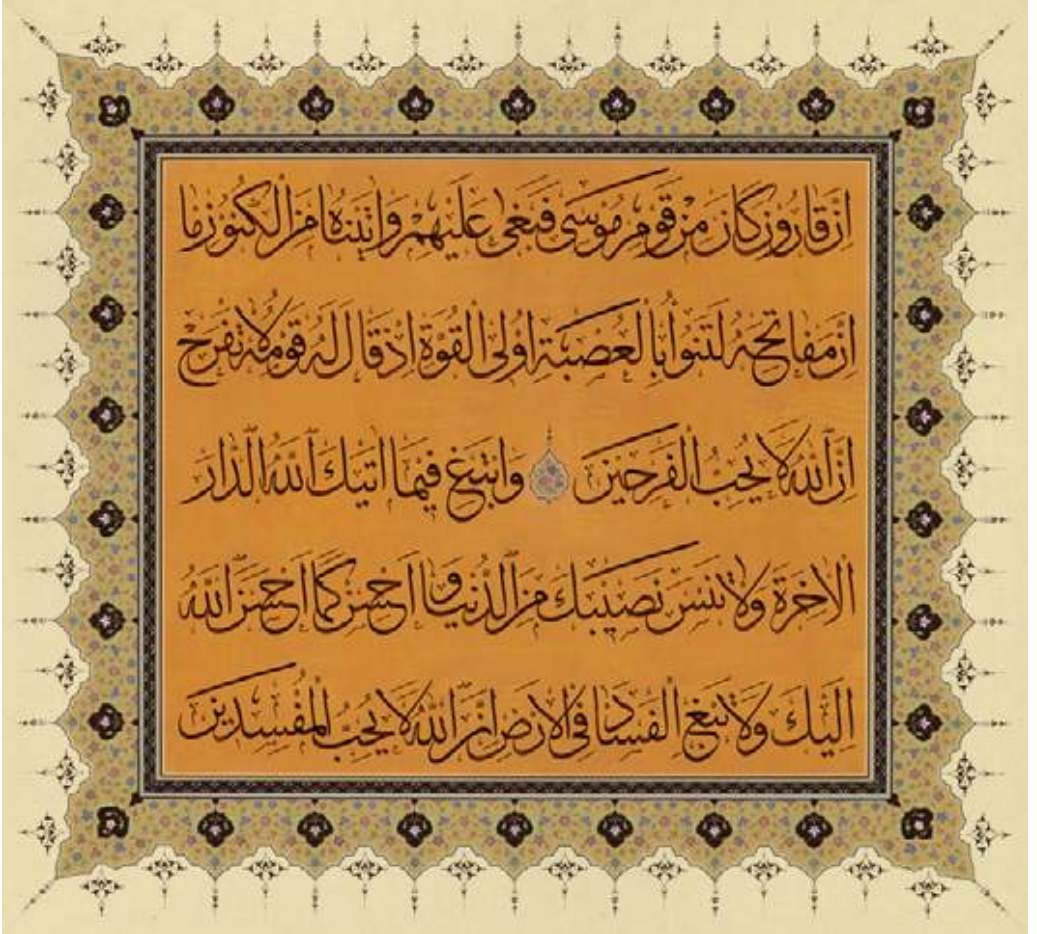 ان قارون كان من قوم موسى فبغى عليهم واتيناه من الكنوز ما
ان مفاتحه لتنوأ بالعصبة اولى القوة اذ قال له قومه لا تفرح
ان الله لا يحب الفرحين وابتغ فيما اتيك الله الدار
الاخرة ولا تنس نصيبك من الدنيا واحسن كما احسن الله
اليك ولا تبغ الفساد فى الارض ان الله لا يحب المفسدين